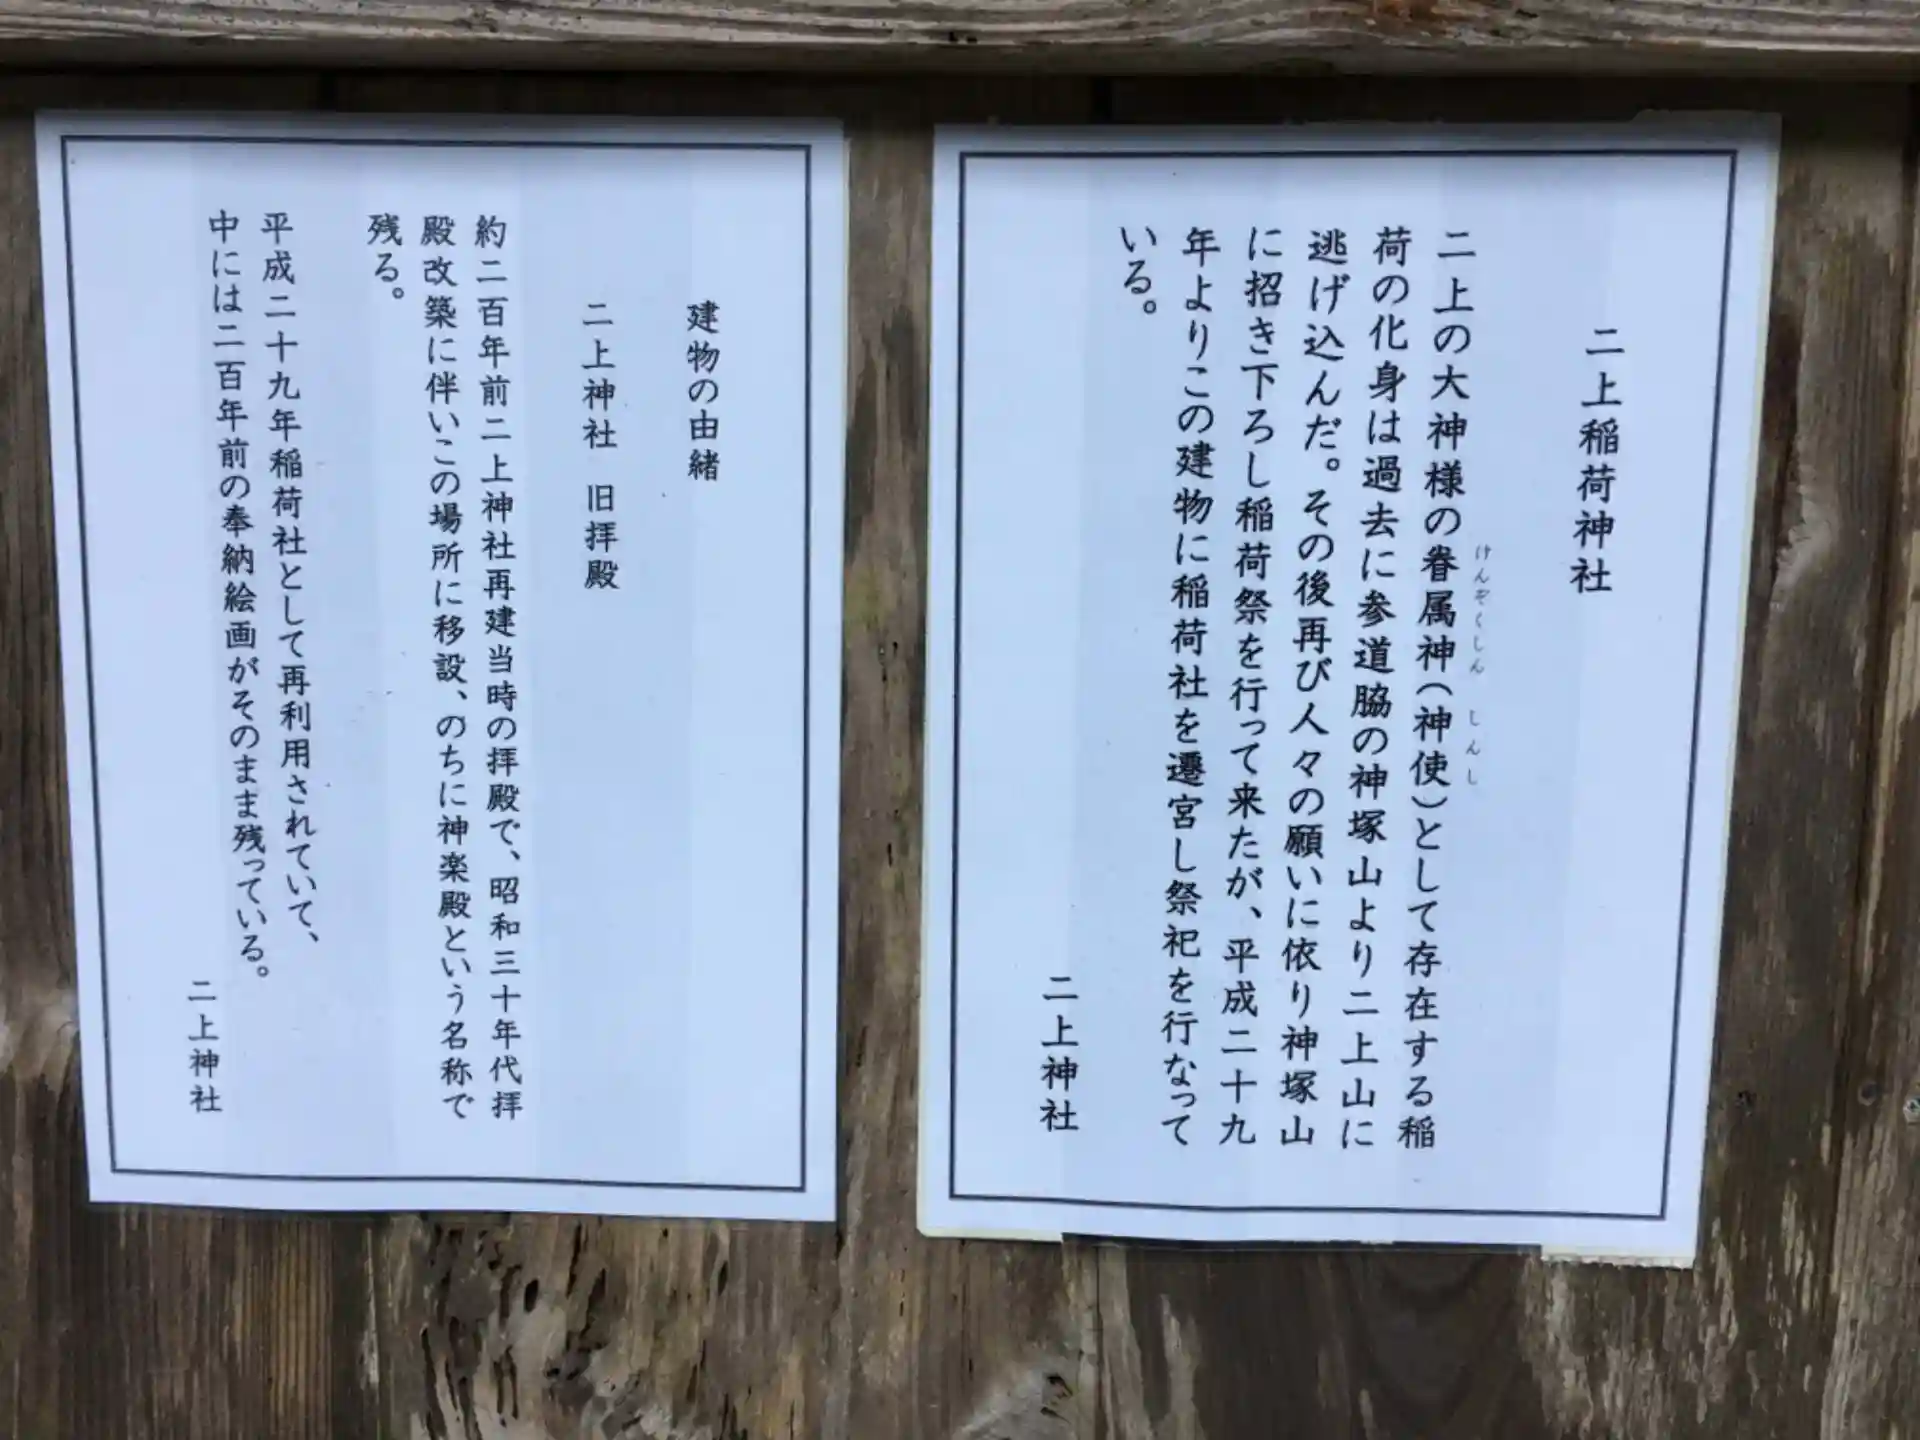 二上稲荷神社
二上の大神様の眷属神(神使)として存在する稲
けんぞくしん しんし
荷の化身は過去に参道脇の神塚山より二上山に
逃げ込んだ。その後再び人々の願いに依り神塚山
に招き下ろし稲荷祭を行って来たが、平成二十九
年よりこの建物に稲荷社を遷宮し祭祀を行なって
いる。
二上神社
建物の由緒
二上神社 旧拝殿
約二百年前二上神社再建当時の拝殿で、昭和三十年代拝
殿改築に伴いこの場所に移設、のちに神楽殿という名称で
残る。
平成二十九年稲荷社として再利用されていて、
中には二百年前の奉納絵画がそのまま残っている。
二上神社